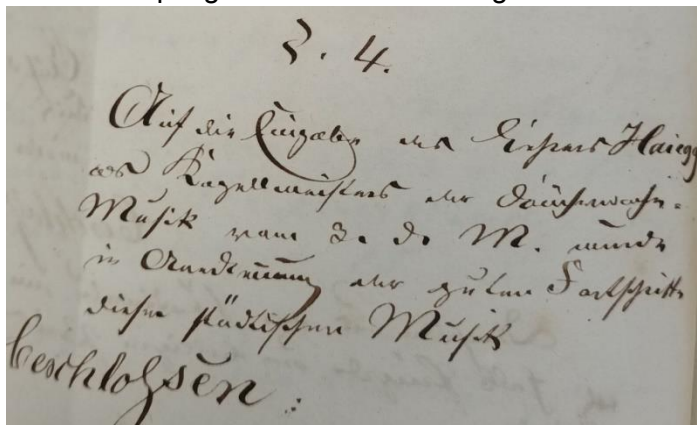 §. 4.
Auf die Eingabe des Lehrers Haiegg
als Kapellmeisters der
Musik vom 3. d. M. wurde
in Anerkennung der guten Fortschritte
dieser städtischen Musik
beschloßsen: